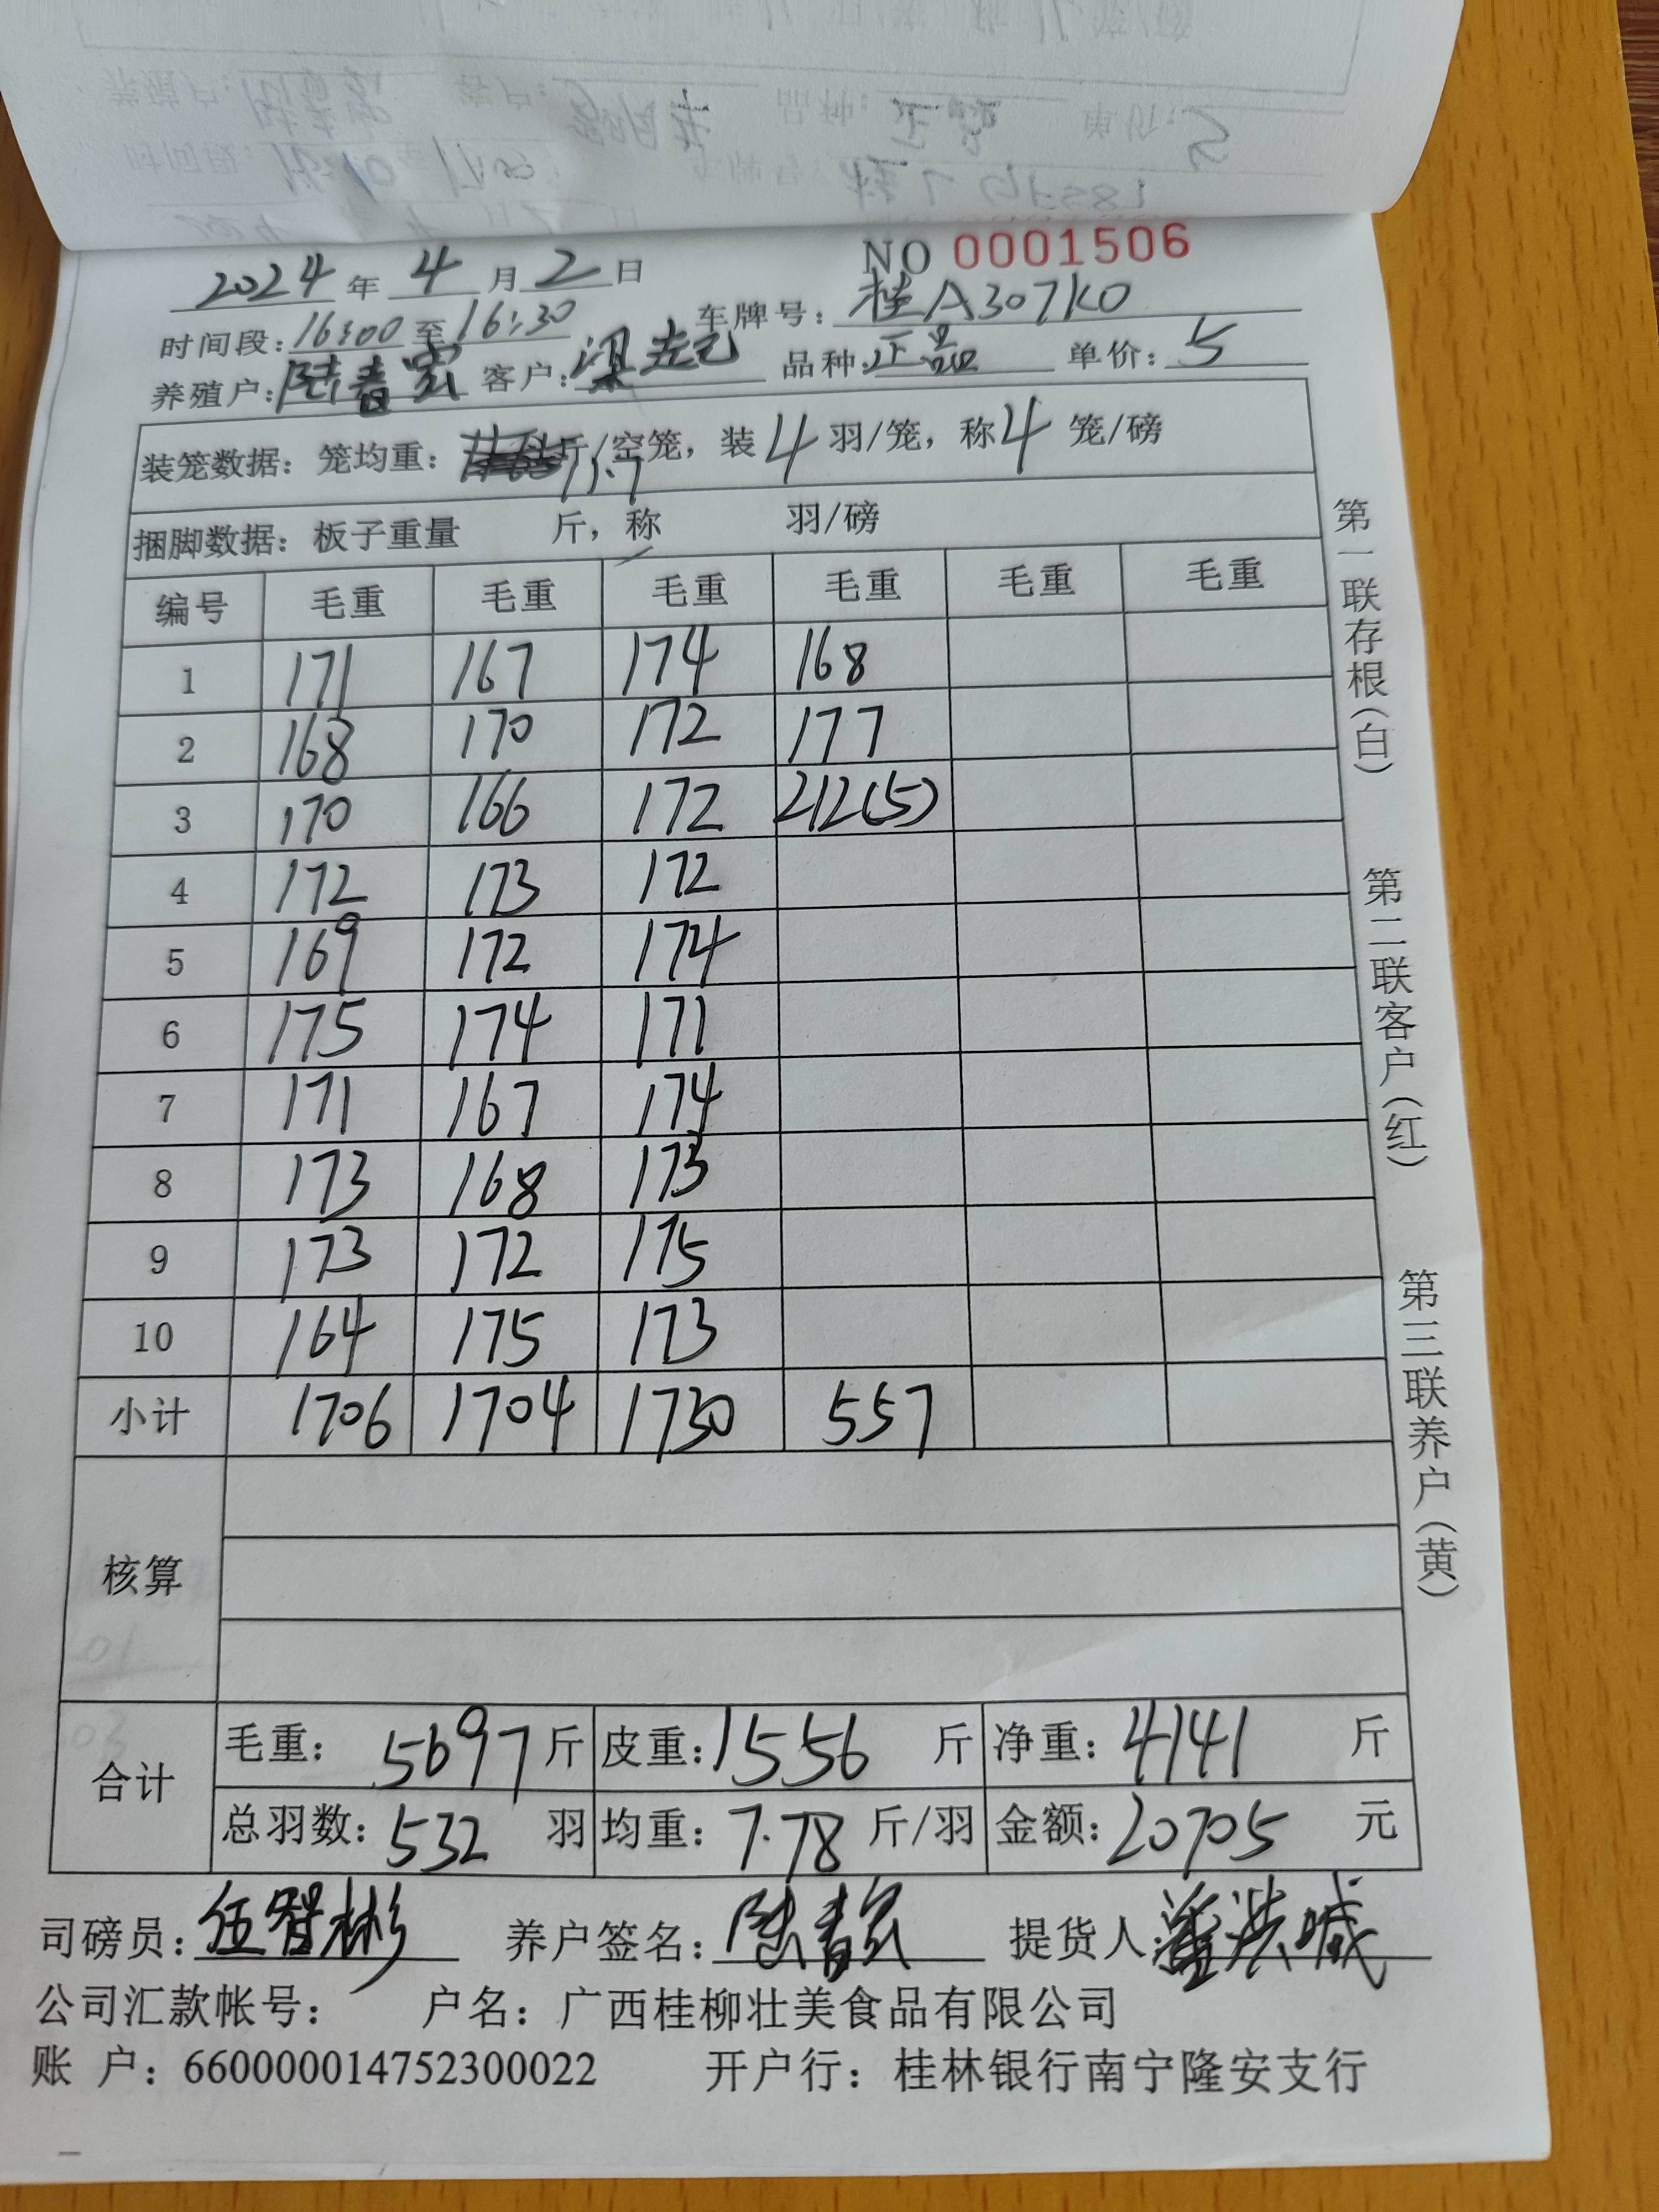 NO 0001506
2024 年 4 月 2 日
时间段: 16:00 至 16:30 车牌号: 桂A307K0
养殖户: 陆春宏 客户: 梁 品种: 正品 单价: 5
装笼数据: 笼均重: 13.7 斤/空笼, 装 4 羽/笼, 称 4 笼/磅
捆脚数据: 板子重量 斤, 称 羽/磅
编号 毛重 毛重 毛重 毛重 毛重 毛重
1 171 167 174 168
2 168 170 172 177
3 170 166 172 212(5)
4 172 173 172
5 169 172 174
6 175 174 171
7 171 167 174
8 173 168 173
9 173 172 175
10 164 175 173
小计 1706 1704 1730 557
核算
合计
毛重: 5697 斤 皮重: 1556 斤 净重: 4141 斤
总羽数: 532 羽 均重: 7.78 斤/羽 金额: 20705 元
司磅员: 伍智彬 养户签名: 陆春宏 提货人:
公司汇款帐号: 户名: 广西桂柳壮美食品有限公司
账 户: 660000014752300022 开户行: 桂林银行南宁隆安支行
第一联存根(白)
第二联客户(红)
第三联养户(黄)